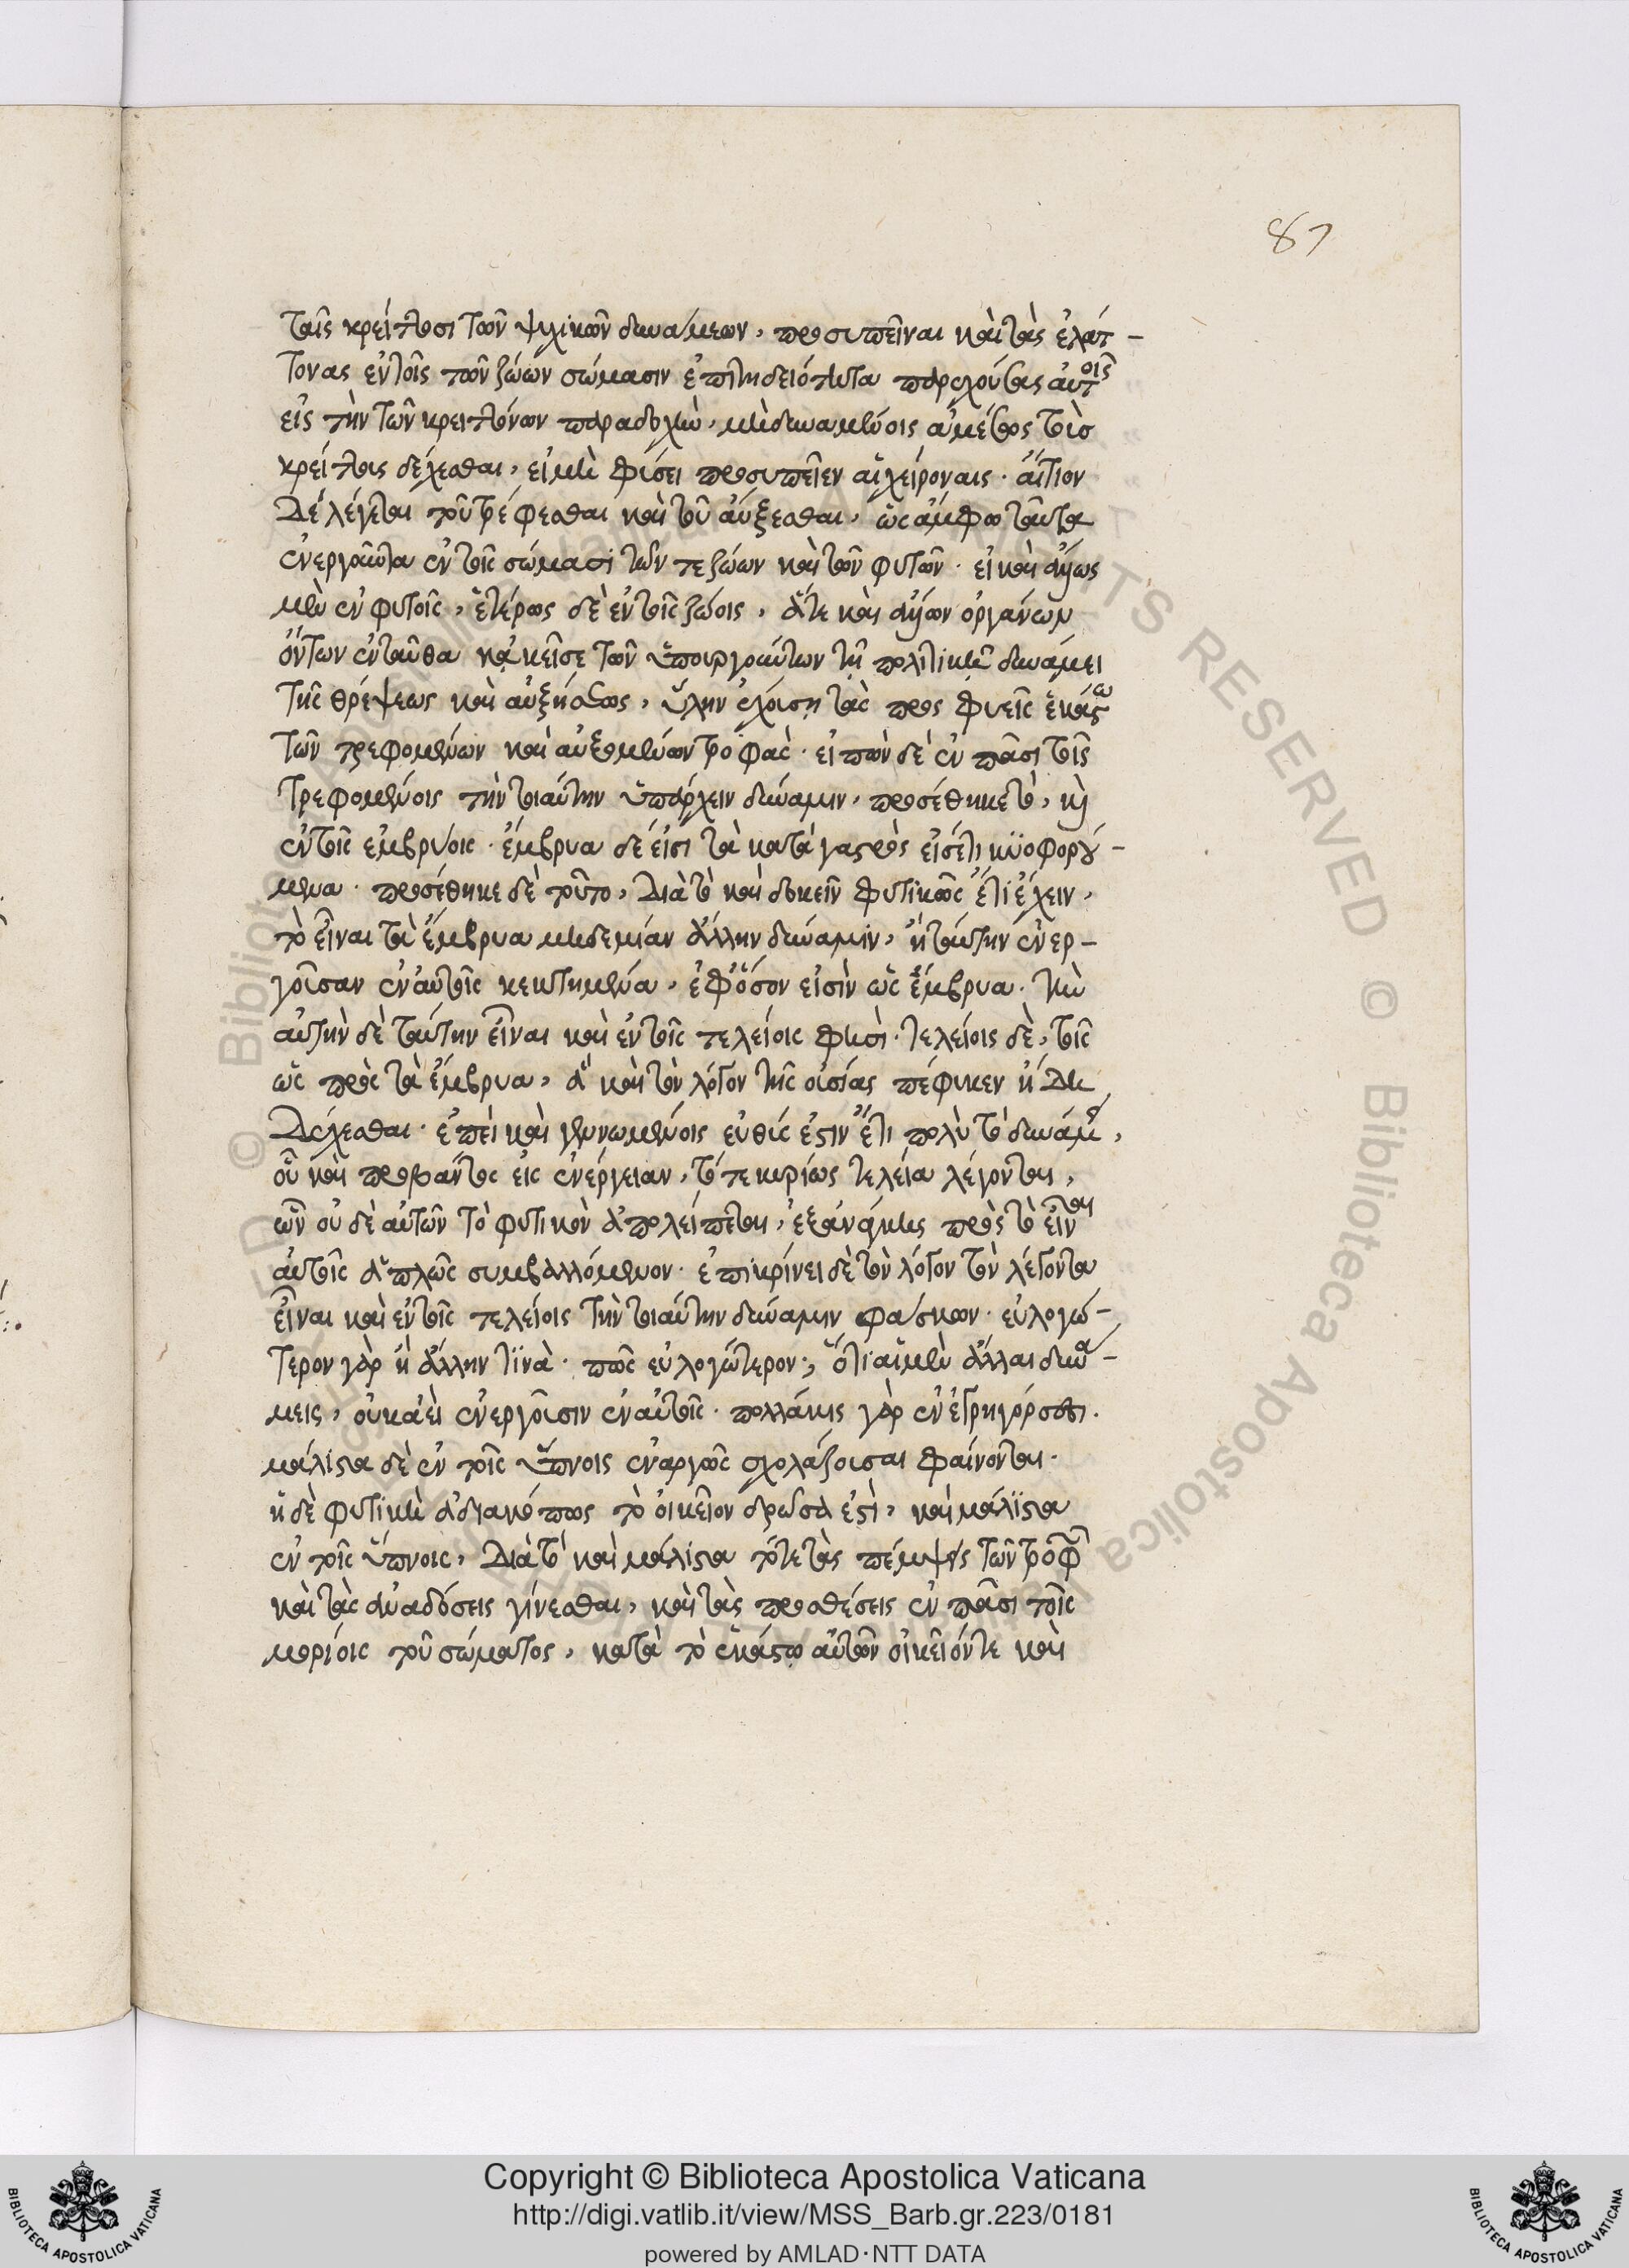 87
ταῖς κρείττοσι τῶν ψυχικῶν δυνάμεων, προσυπεῖναι καὶ τὰς ἐλάτ-
τονας ἐν τοῖς τῶν ζώων σώμασιν ἐπιτηδειότητα παρεχούσας αὐτοῖς
εἰς τὴν τῶν κρειττόνων παραδοχὴν, μὴ δυναμένοις ἀμέσως τὰς
κρείττοις δέχεσθαι, εἰ μὴ φύσει προσυπεῖεν αἱ χείροναις. αἴτιον
δὲ λέγεται τοῦ τρέφεσθαι καὶ τοῦ αὔξεσθαι, ὡς ἄμφω ταῦτα
ἐνεργοῦντα ἐν τοῖς σώμασι τῶν τε ζώων καὶ τῶν φυτῶν. εἰ καὶ ἄλλως
μὲν ἐν φυτοῖς, ἑτέρως δὲ ἐν τοῖς ζώοις, ἅτε καὶ ἄλλων ὀργάνων
ὄντων ἐνταῦθα κἀκεῖσε τῶν ὑπουργούντων τῇ πολιτικῇ δυνάμει
τῆς θρέψεως καὶ αὐξήσεως, ὕλην ἐχούσῃ τὰς προσφυεῖς ἑκάστω
τῶν τρεφομένων καὶ αὐξομένων τροφάς. εἰπὼν δὲ ἐν πᾶσι τοῖς
τρεφομένοις τὴν τοιαύτην ὑπάρχειν δύναμιν, προσέθηκε τὸ, καὶ
ἐν τοῖς ἐμβρύοις. ἔμβρυα δέ εἰσι τὰ κατὰ γαστρὸς εἰσέτι κυοφορού-
μενα. προσέθηκε δὲ τοῦτο, διὰ τὸ καὶ δοκεῖν φυτικῶς ἔτι ἔχειν,
τὸ εἶναι τὰ ἔμβρυα μηδεμίαν ἄλλην δύναμιν, ἢ ταύτην ἐνερ-
γοῦσαν ἐν αὐτοῖς κεκτημένα, ἐφ' ὅσον εἰσὶν ὡς ἔμβρυα. τὴν
αὐτὴν δὲ ταύτην εἶναι καὶ ἐν τοῖς τελείοις φησὶ. τελείοις δὲ, τοῖς
ὡς πρὸς τὰ ἔμβρυα, ἃ καὶ τὸν λόγον τῆς οὐσίας πέφυκεν ἤδη
δέχεσθαι. ἐπεὶ καὶ γεννωμένοις εὐθύς ἐστιν ἔτι πολὺ τὸ δυνάμει,
οὗ καὶ προβάντος εἰς ἐνέργειαν, τότε κυρίως τελεία λέγονται,
ὧν οὐδὲ αὐτῶν τὸ φυτικὸν ἀπολείπεται, ἐξανάγκης πρὸς τὸ εἶναι
αὐτοῖς ἁπλῶς συμβαλλόμενον. ἐπικρίνει δὲ τὸν λόγον τὸν λέγοντα
εἶναι καὶ ἐν τοῖς τελείοις τὴν τοιαύτην δύναμιν φάσκων. εὐλογώ-
τερον γὰρ ἢ ἄλλην τινὰ. πῶς εὐλογώτερον; ὅτι αἱ μὲν ἄλλαι δυνά-
μεις, οὐκ ἀεὶ ἐνεργοῦσιν ἐν αὐτοῖς. πολλάκις γὰρ ἐν ἐγρηγόρσεσι.
μάλιστα δὲ ἐν τοῖς ὕπνοις ἐναργῶς σχολάζουσαι φαίνονται.
ἡ δὲ φυτικὴ ἀδιακόπως τὸ οἰκεῖον δρῶσά ἐστὶ, καὶ μάλιστα
ἐν τοῖς ὕπνοις, διὰ τὸ καὶ μάλιστα τότε τὰς πέμψεις τῶν τροφῶν
καὶ τὰς ἀναδόσεις γίνεσθαι, καὶ τὰς προσθέσεις ἐν πᾶσι τοῖς
μορίοις τοῦ σώματος, κατὰ τὸ ἑκάστω αὐτῶν οἰκεῖόν τε καὶ
Copyright © Biblioteca Apostolica Vaticana
http://digi.vatlib.it/view/MSS_Barb.gr.223/0181
powered by AMLAD·NTT DATA